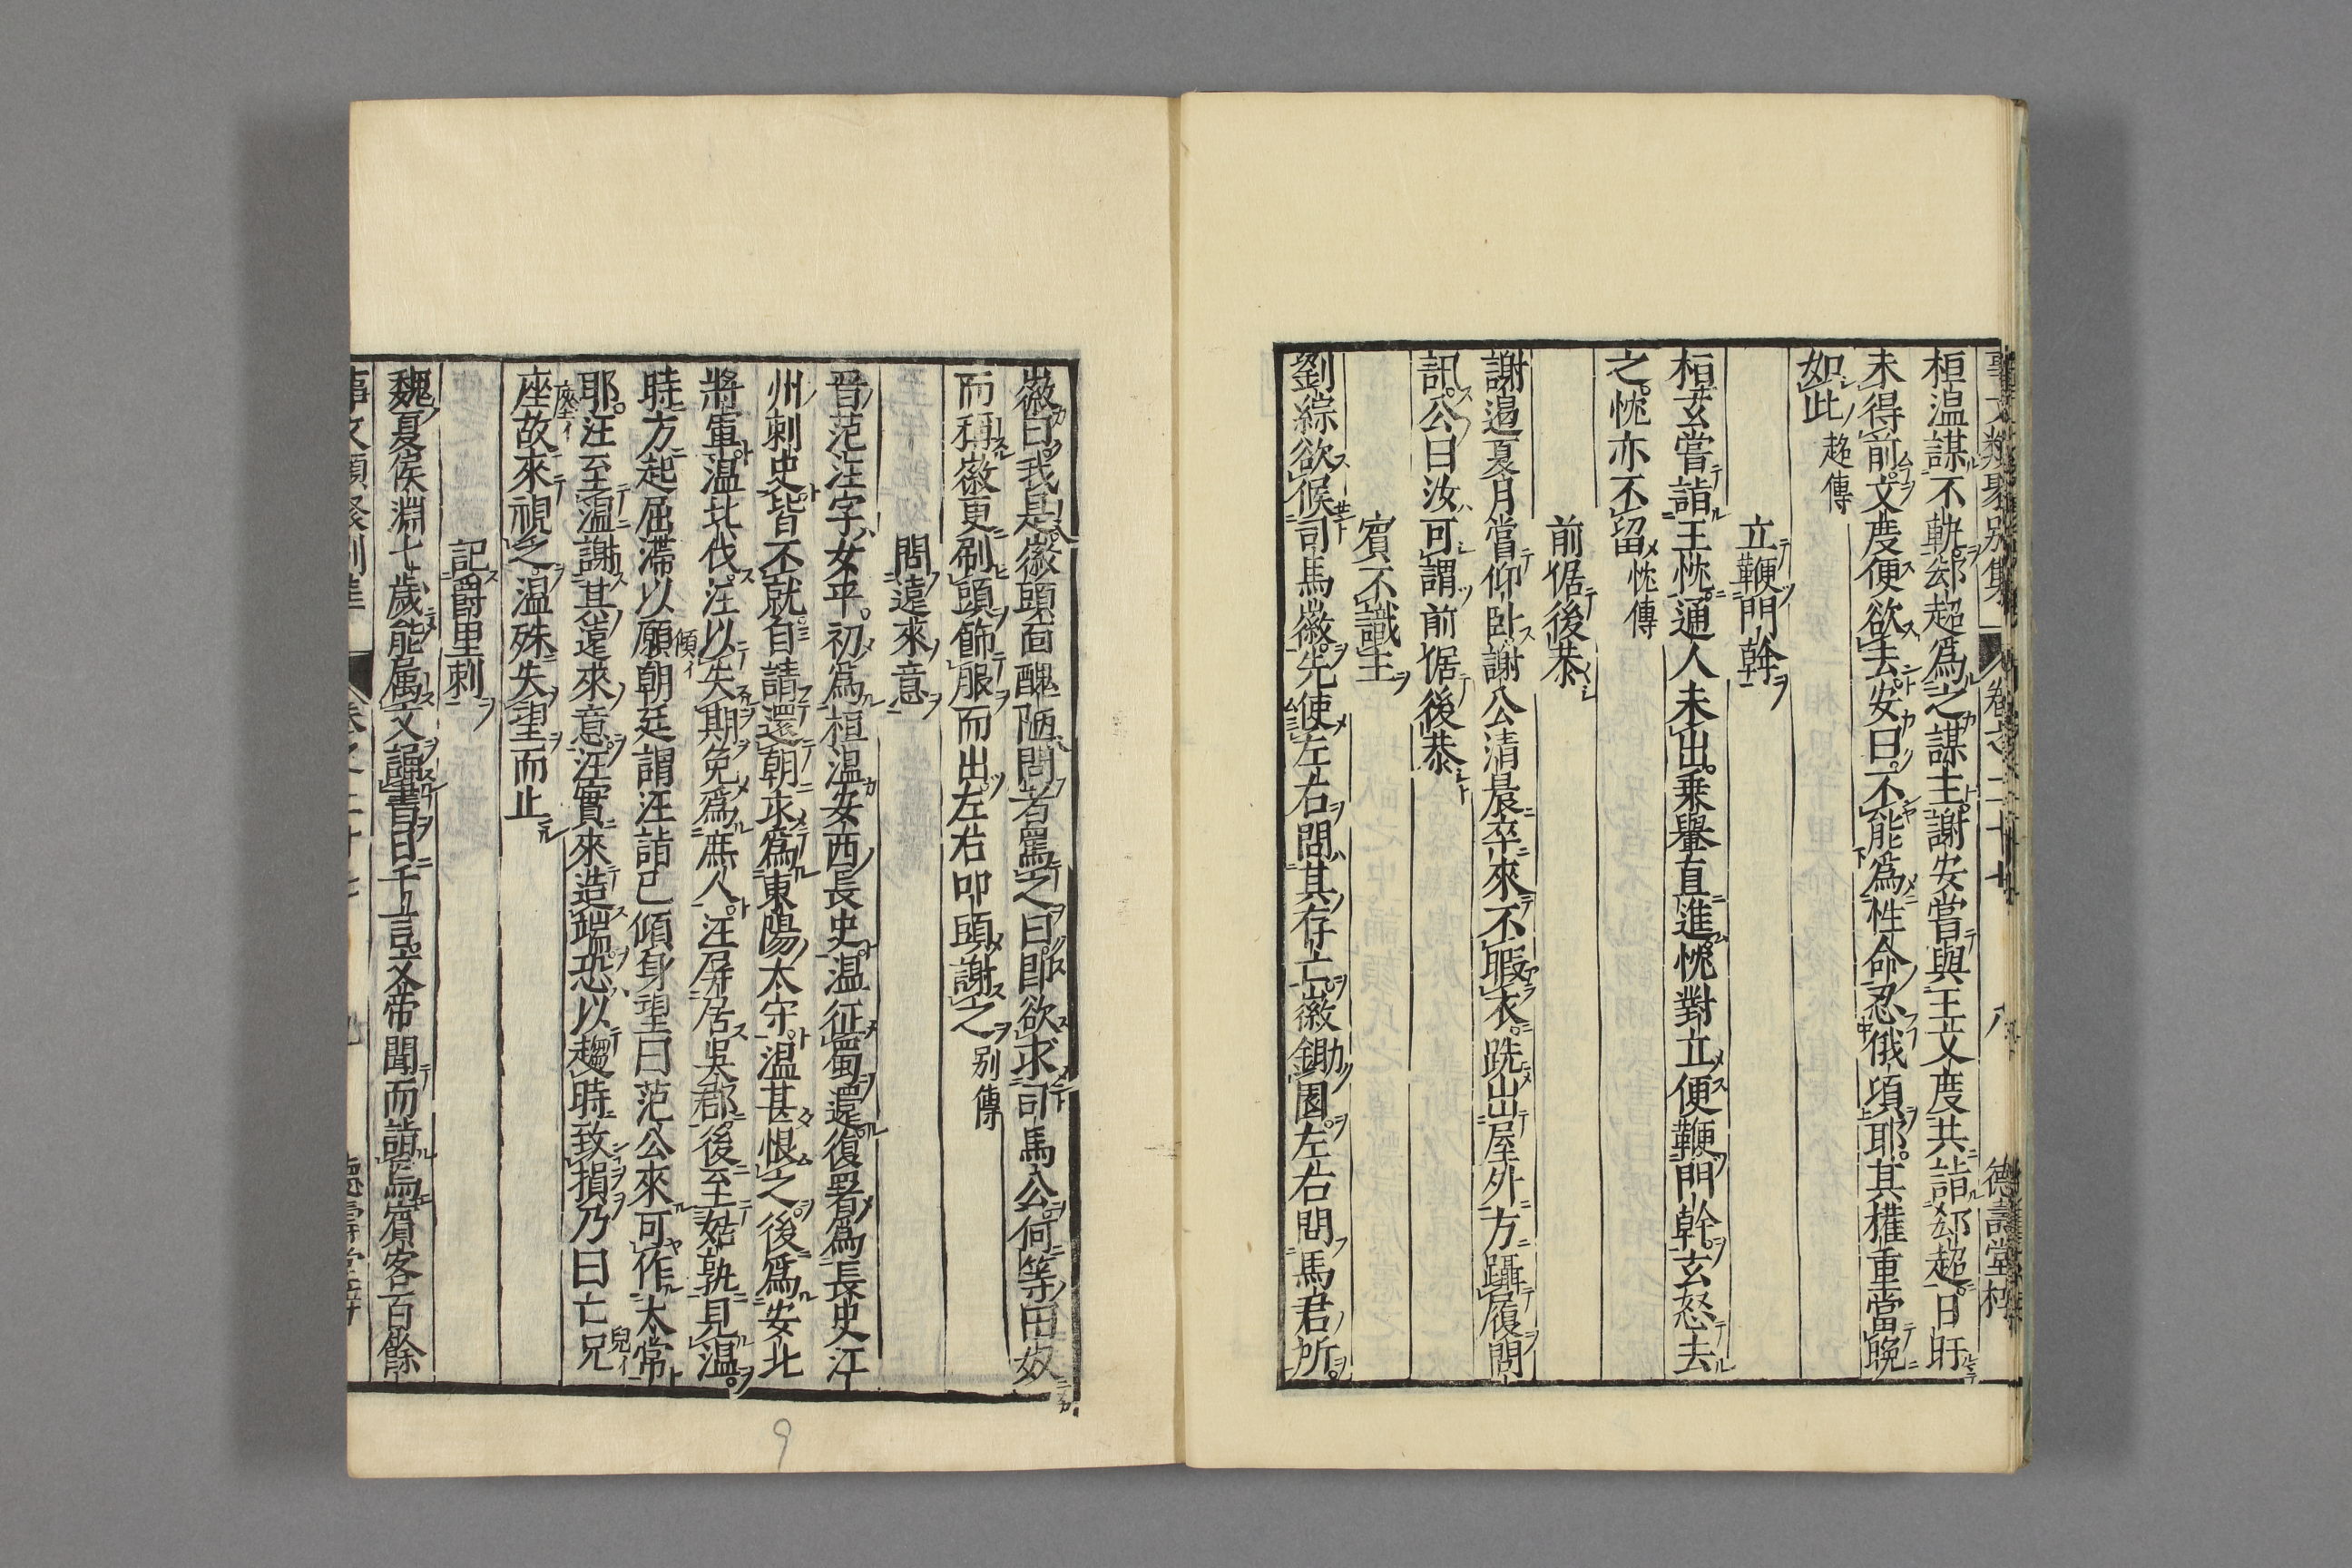 事文類聚別集 卷之二十七 八 德壽堂梓
桓温謀不軌郄超爲之謀主謝安嘗與王文度共詣郄超日旰
未得前文度便欲去安曰不能爲性命忍俄頃耶其權重當晩
如此 超傳
立鞭門幹
桓玄嘗詣王忱通人未出乗轝直進忱對立便鞭門幹玄怒去
之忱亦不留 忱傳
前倨後恭
謝遏夏月嘗仰卧謝公清晨卒來不暇衣跣出屋外方躡履問
訊公曰汝可謂前倨後恭
賓不識主
劉綜欲候司馬徽先使左右問其存亡徽鋤園左右問馬君所
徽曰我是徽頭面醜陋問者罵之曰即欲求司馬公何等田奴
而稱徽更刷頭飾服而出左右叩頭謝之 別傳
問遠來意
晉范汪字女平初爲桓温安西長史温征蜀還復署爲長史江
州刺史皆不就自請還朝求爲東陽太守温甚恨之後爲安北
將軍温北伐汪以失期免爲庶人汪屏居吳郡後至姑孰見温
時方起屈滯以願傾イ朝廷謂汪詣已傾身望曰范公來可作太常
耶汪至温謝其遠來意汪實來造端恐以趨時致損乃曰亡兄兒イ
座座イ故來視之温殊失望而止
記爵里刺
魏夏侯淵七歲能属文誦書日千五言文帝聞而詣焉賓客百餘
事文類聚別集 卷之二十七 九 德壽堂梓
9